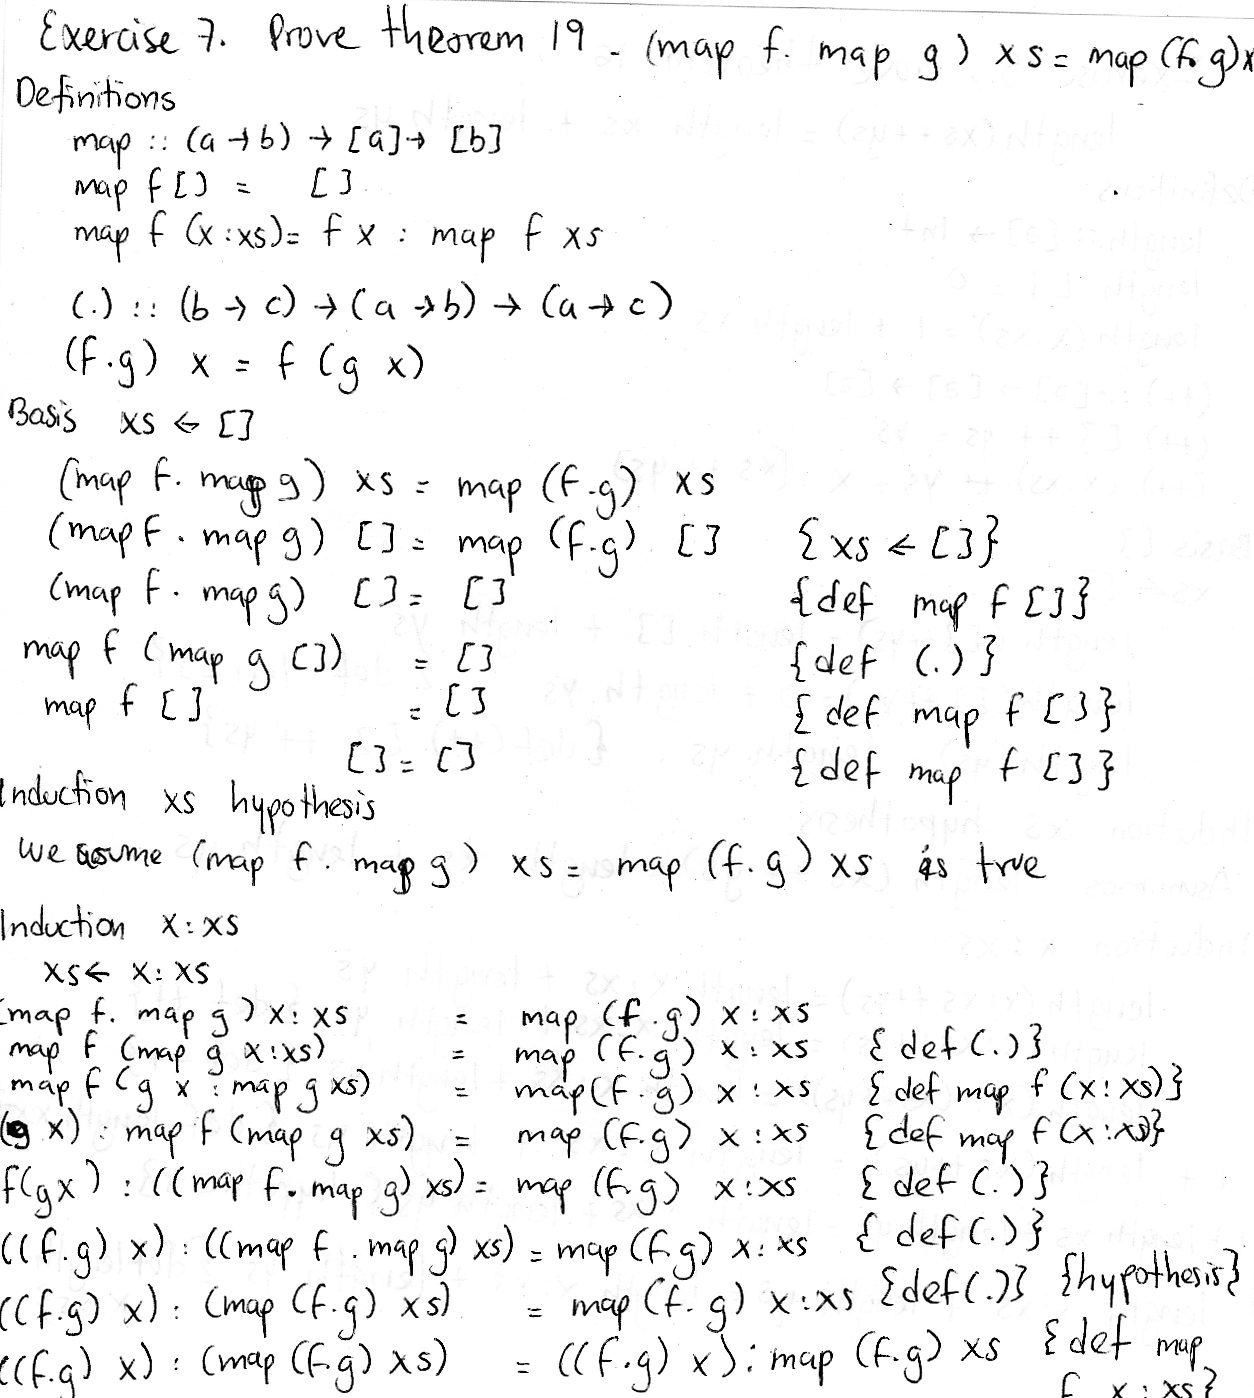 Exercise 7. Prove theorem 19 - (map f. map g) xs = map (f. g) x
Definitions
map :: (a → b) → [a] → [b]
map f [] = []
map f (x:xs) = f x : map f xs
(.) :: (b → c) → (a → b) → (a → c)
(f.g) x = f (g x)
Basis xs ← []
(map f. map g) xs = map (f.g) xs
(map f . map g) [] = map (f.g) [] {xs ← []}
(map f. map g) [] = [] {def map f []}
map f (map g []) = [] {def (.)}
map f [] = [] {def map f []}
[] = [] {def map f []}
Induction xs hypothesis
we assume (map f. map g) xs = map (f.g) xs is true
Induction x:xs
xs ← x:xs
(map f. map g) x:xs = map (f.g) x:xs
map f (map g x:xs) = map (f.g) x:xs {def(.)}
map f (g x : map g xs) = map(f.g) x:xs {def map f (x:xs)}
(g x) : map f (map g xs) = map (f.g) x:xs {def map f (x:xs)}
f(gx) : ((map f. map g) xs) = map (f.g) x:xs {def (.)}
((f.g) x) : ((map f . map g) xs) = map (f g) x:xs {def(.)}
((f.g) x) : (map (f.g) xs) = map (f. g) x:xs {def(.)} {hypothesis}
((f.g) x) : (map (f.g) xs) = ((f.g) x) : map (f.g) xs {def map
f x:xs}